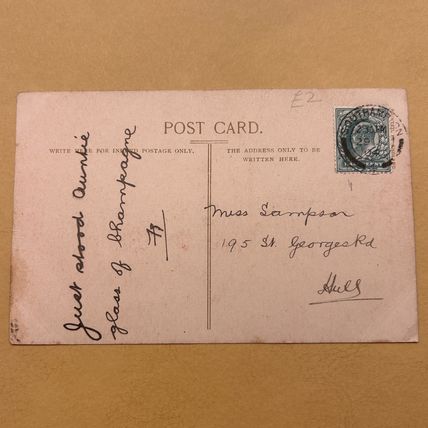 £2
POST CARD.
WRITE HERE FOR INLAND POSTAGE ONLY.
THE ADDRESS ONLY TO BE
WRITTEN HERE.
SOUTHAMPTON
Just stood Auntie
glass of Champagne
Miss Sampson
195 St. Georges Rd
Hull